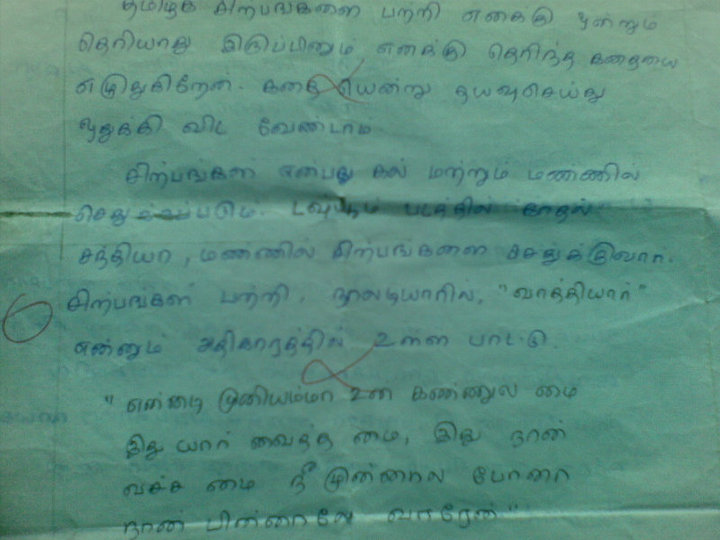 தமிழக சிற்பங்களை பற்றி எனக்கு ஒன்றும்
தெரியாது இருப்பினும் எனக்கு தெரிந்த கதையை
எழுதுகிறேன். கதை யென்று தயவுசெய்து
ஒதுக்கி விட வேண்டாம்.
சிற்பங்கள் என்பது கல் மற்றும் மண்ணில்
படத்தில் காதல்
சந்தியா, மண்ணில் சிற்பங்களை செதுக்குவார்.
சிற்பங்கள் பற்றி, நாலடியாரில், "வாத்தியார்"
என்னும் அதிகாரத்தில் உள்ள பாட்டு.
"என்னடி முனியம்மா உன் கண்ணுல மை
இது யார் வைத்த மை, இது நான்
வச்ச மை நீ முன்னால போனா
நான் பின்னாலே வாரேன்"